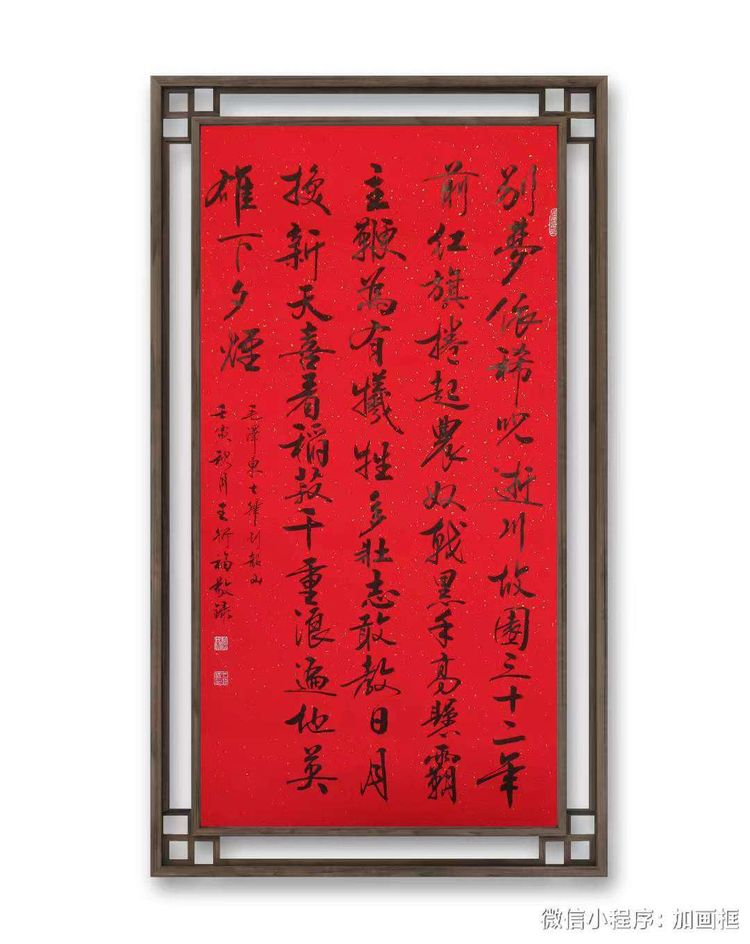 别夢依稀咒逝川故園三十二年
前红旗捲起農奴戟黑手高懸霸
主鞭為有犧牲多壮志敢教日月
换新天喜看稻菽千重浪遍地英
雄下夕煙
毛泽東七律到韶山
壬寅秋月王衍福敬録
微信小程序：加画框